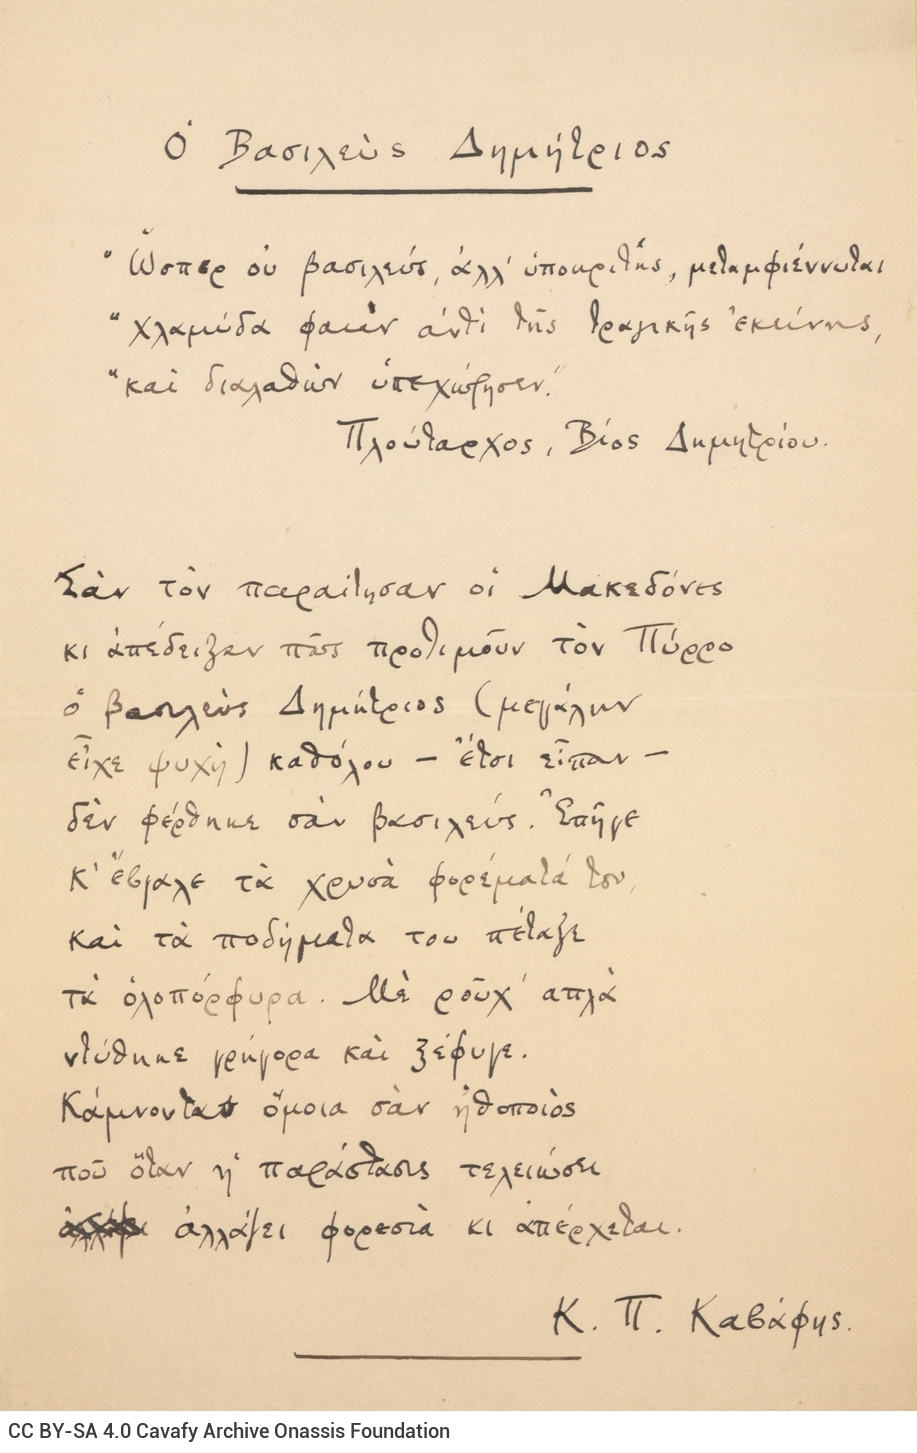 Ὁ Βασιλεὺς Δημήτριος
"Ὥσπερ οὐ βασιλεύς, ἀλλ' ὑποκριτὴς, μεταμφιέννυται
"χλαμύδα φαιὰν ἀντὶ τῆς τραγικῆς ἐκείνης,
"καὶ διαλαθὼν ὑπεχώρησεν."
Πλούταρχος, Βίος Δημητρίου.
Σὰν τὸν παραίτησαν οἱ Μακεδόνες
κι ἀπέδειξαν πῶς προτιμοῦν τὸν Πύρρο
ὁ βασιλεὺς Δημήτριος (μεγάλην
εἶχε ψυχὴ) καθόλου — ἔτσι εἶπαν —
δὲν φέρθηκε σὰν βασιλεύς. Ἐπῆγε
κ' ἔβγαλε τὰ χρυσὰ φορέματά του,
καὶ τὰ ποδήματά του πέταξε
τὰ ὁλοπόρφυρα. Μὲ ροῦχ' ἁπλὰ
ντύθηκε γρήγορα καὶ ξέφυγε.
Κάμνοντας ὅμοια σὰν ἠθοποιὸς
ποῦ ὅταν ἡ παράστασις τελειώσει
ἀλλάζει φορεσιὰ κι ἀπέρχεται.
Κ. Π. Καβάφης.
CC BY-SA 4.0 Cavafy Archive Onassis Foundation